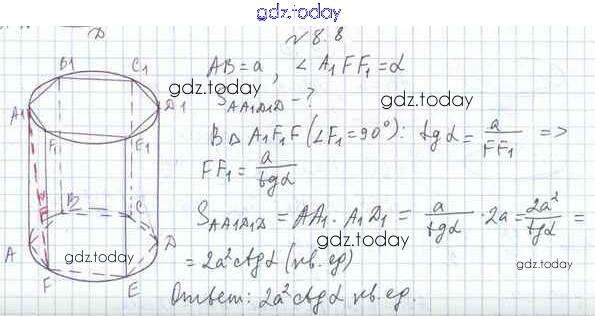 gdz.today
№ 8.8
AB = a, ∠ A1FF1 = α
gdz.today
S AA1D1D - ?
В Δ A1F1F (∠F1 = 90°): tg α = a/FF1 =>
FF1 = a/tgα
S AA1D1D = AA1 · A1D1 = a/tgα · 2a = 2a²/tgα =
= 2a² ctg α (кв. ед)
Ответ: 2a² ctg α кв. ед.
B1 C1
A1 D1
gdz.today
F1 E1
B C
A D
F E
gdz.today
gdz.today
gdz.today